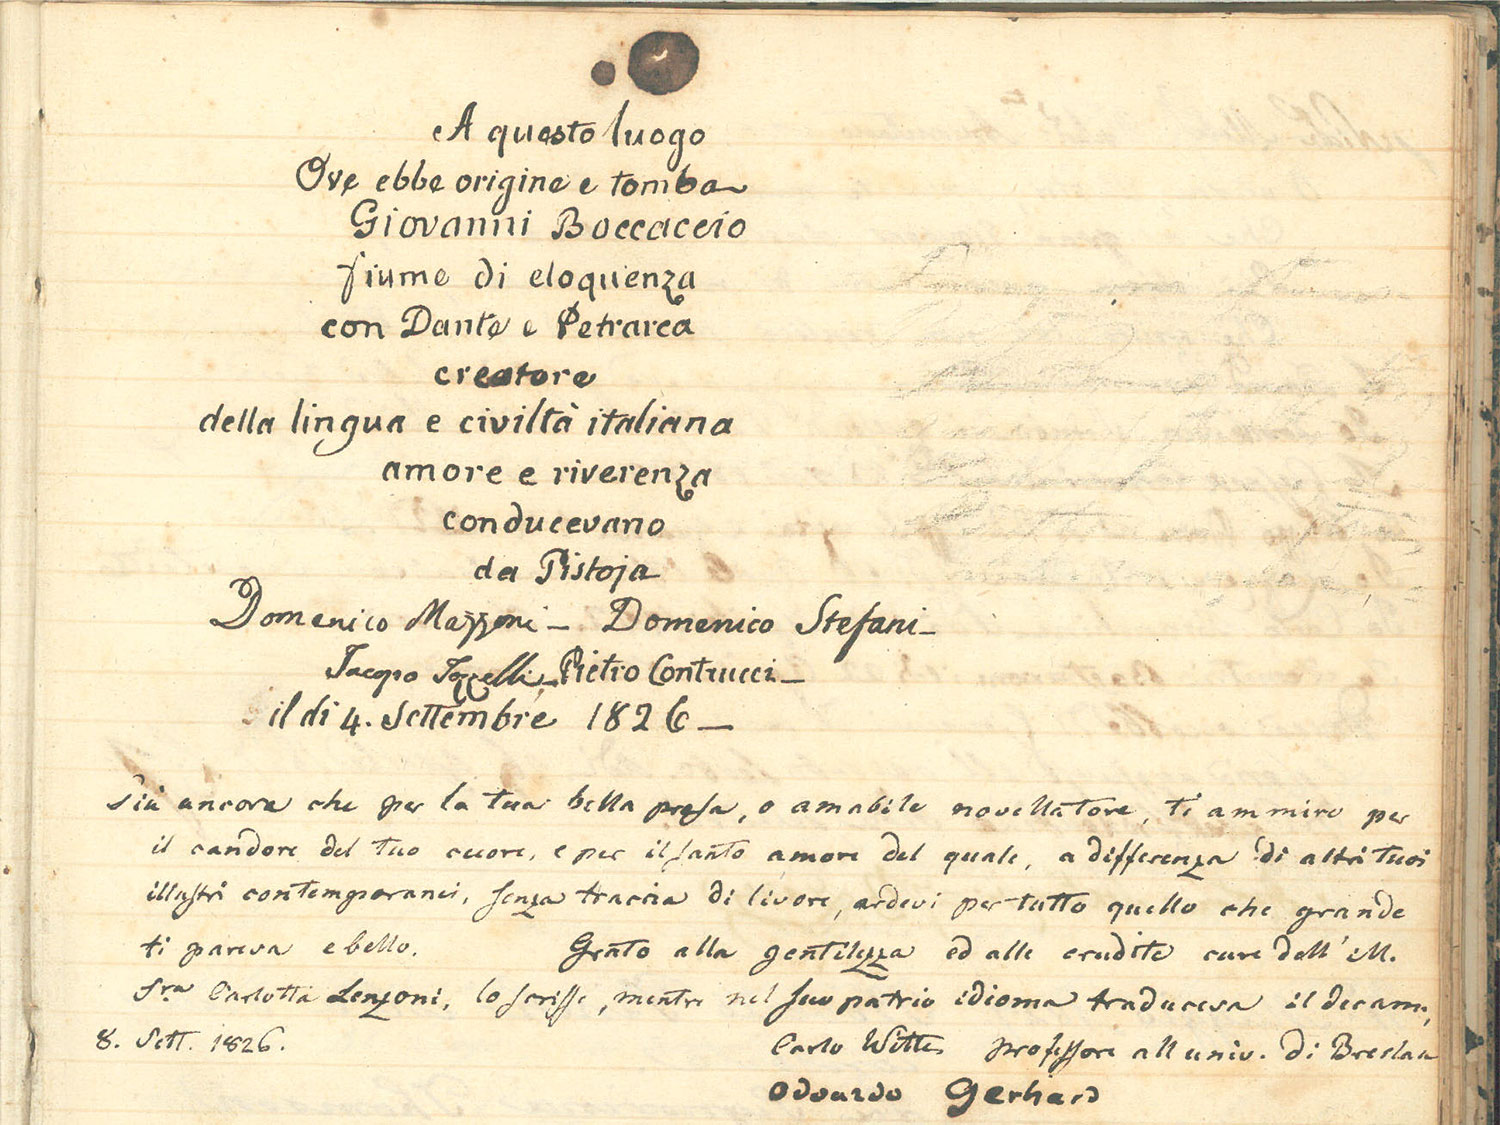 A questo luogo
Ove ebbe origine e tomba
Giovanni Boccaccio
fiume di eloquenza
con Dante e Petrarca
creatore
della lingua e civiltà italiana
amore e riverenza
conducevano
da Pistoja
Domenico Mazzoni – Domenico Stefani –
Jacopo Tozzelli, – Pietro Contrucci –
il di 4. Settembre 1826 –
Più ancora che per la tua bella prosa, o amabile novellatore, ti ammiro per
il candore del tuo cuore, e per il santo amore del quale, a differenza di altri tuoi
illustri contemporanei, senza traccia di livore, ardevi per tutto quello che grande
ti pareva e bello. Grato alla gentilezza ed alle erudite cure dell' M.
Sra Carlotta Lenzoni, lo scrisse, mentre nel suo patrio idioma traduceva il decam,
8. Sett. 1826. Carlo Witte professore all univ. di Breslau
Odoardo Gerhard